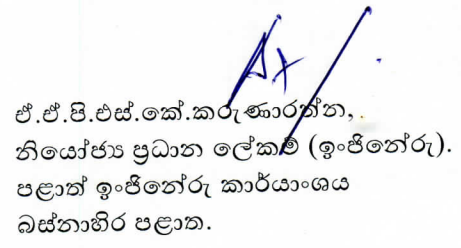 ඒ.ඒ.පි.එස්.කේ.කරුණාරත්න,
නියෝජ්‍ය ප්‍රධාන ලේකම් (ඉංජිනේරු).
පළාත් ඉංජිනේරු කාර්යාංශය
බස්නාහිර පළාත.